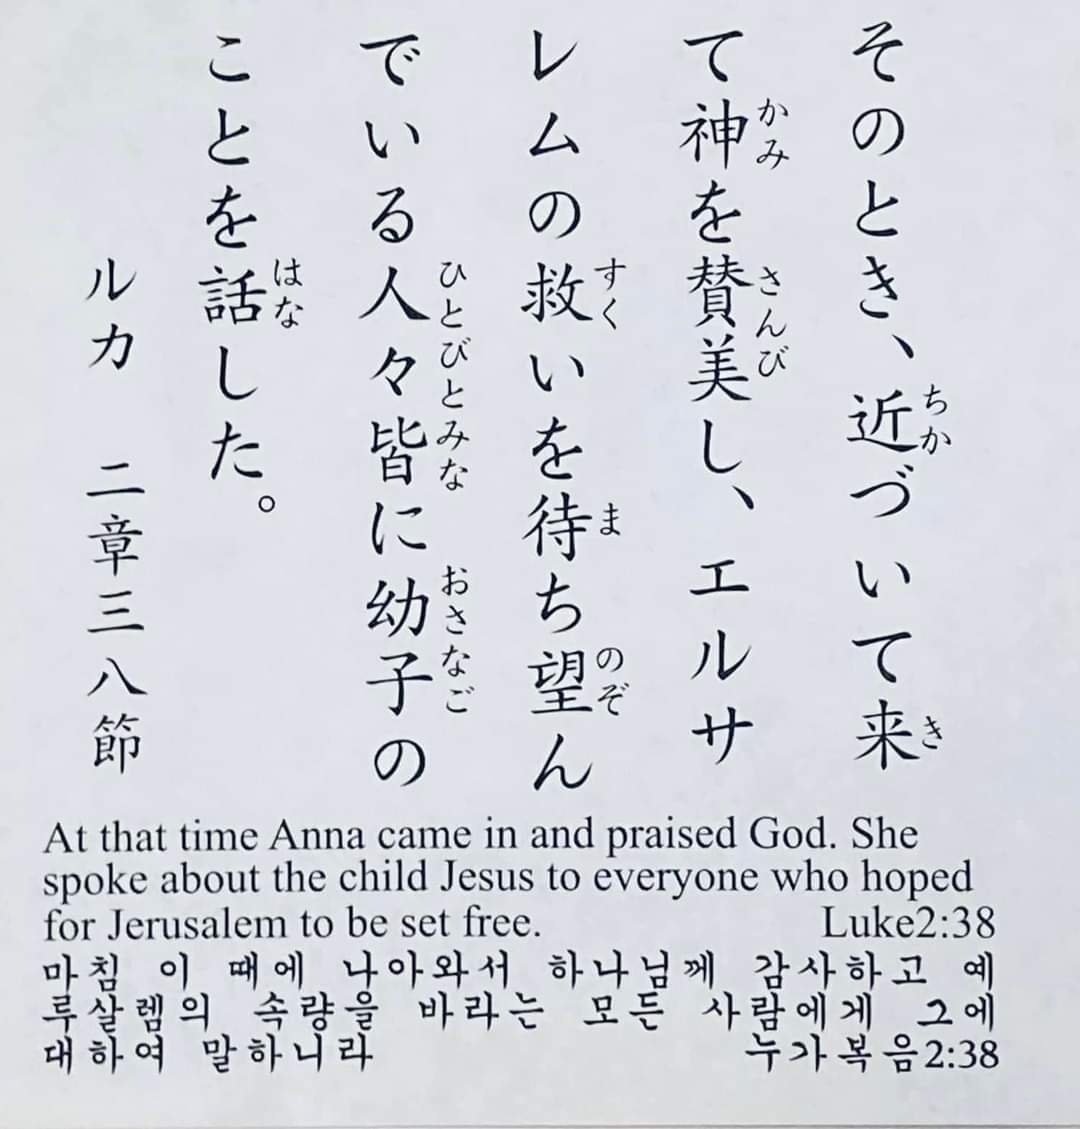 そのとき、近づいて来
て神を賛美し、エルサ
レムの救いを待ち望ん
でいる人々皆に幼子の
ことを話した。
ルカ 二章三八節
ちか き
かみ さんび
すく ま のぞ
ひとびとみな おさなご
はな
At that time Anna came in and praised God. She
spoke about the child Jesus to everyone who hoped
for Jerusalem to be set free. Luke2:38
마침 이 때에 나아와서 하나님께 감사하고 예
루살렘의 속량을 바라는 모든 사람에게 그에
대하여 말하니라 누가복음2:38